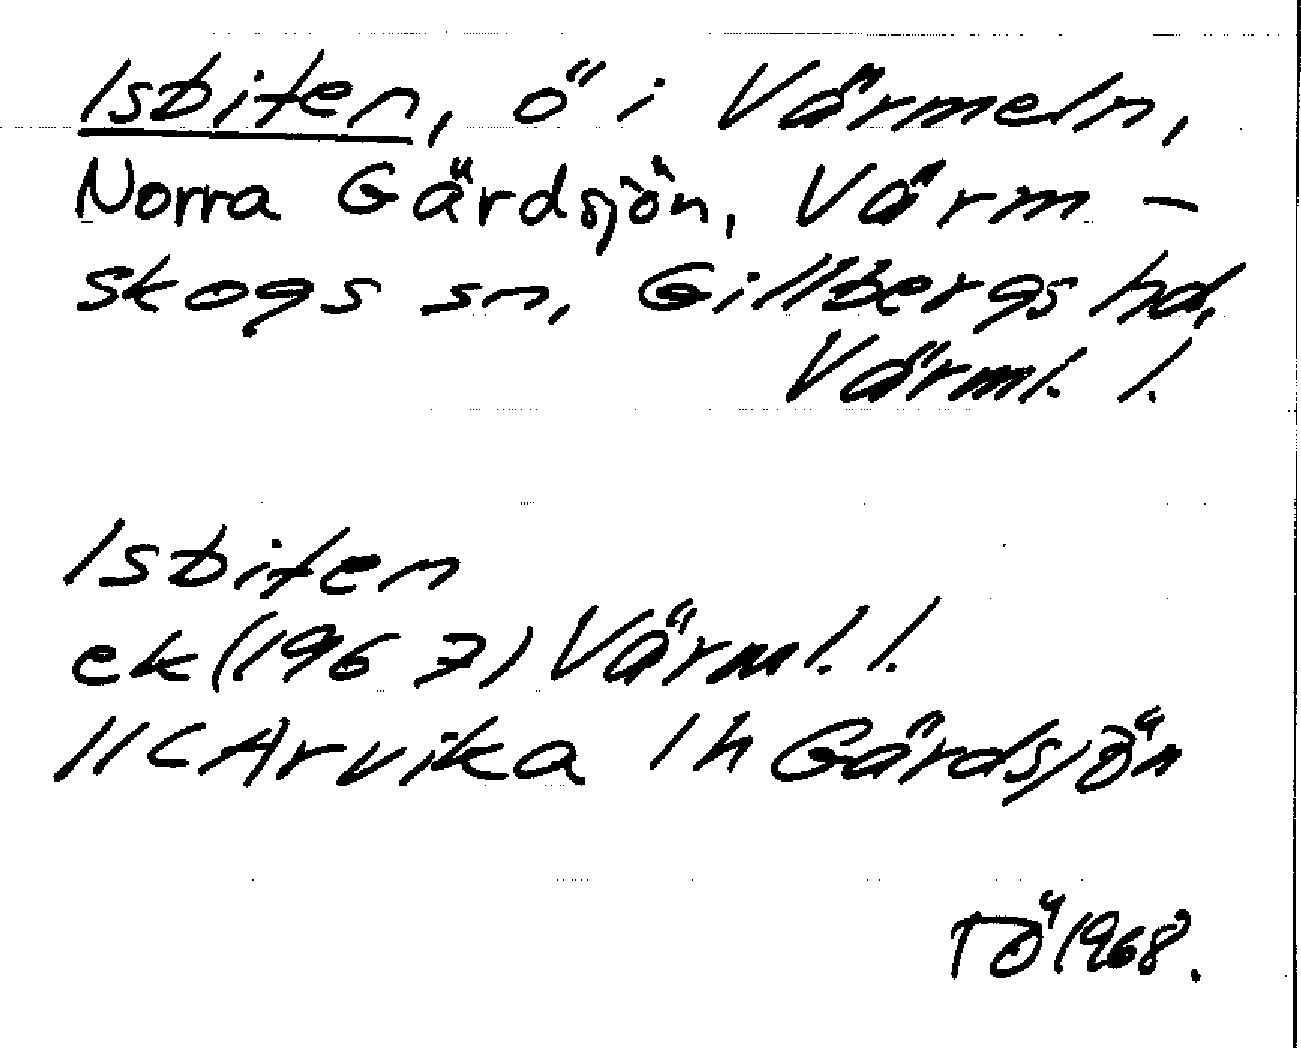 Isbiten, ö i Värmeln,
Norra Gärdsjön, Värm-
skogs sn, Gillbergs hd,
Värml. l.
Isbiten
ek (1967) Värml. l.
11C Arvika 1h Gärdsjön
TÖ 1968.